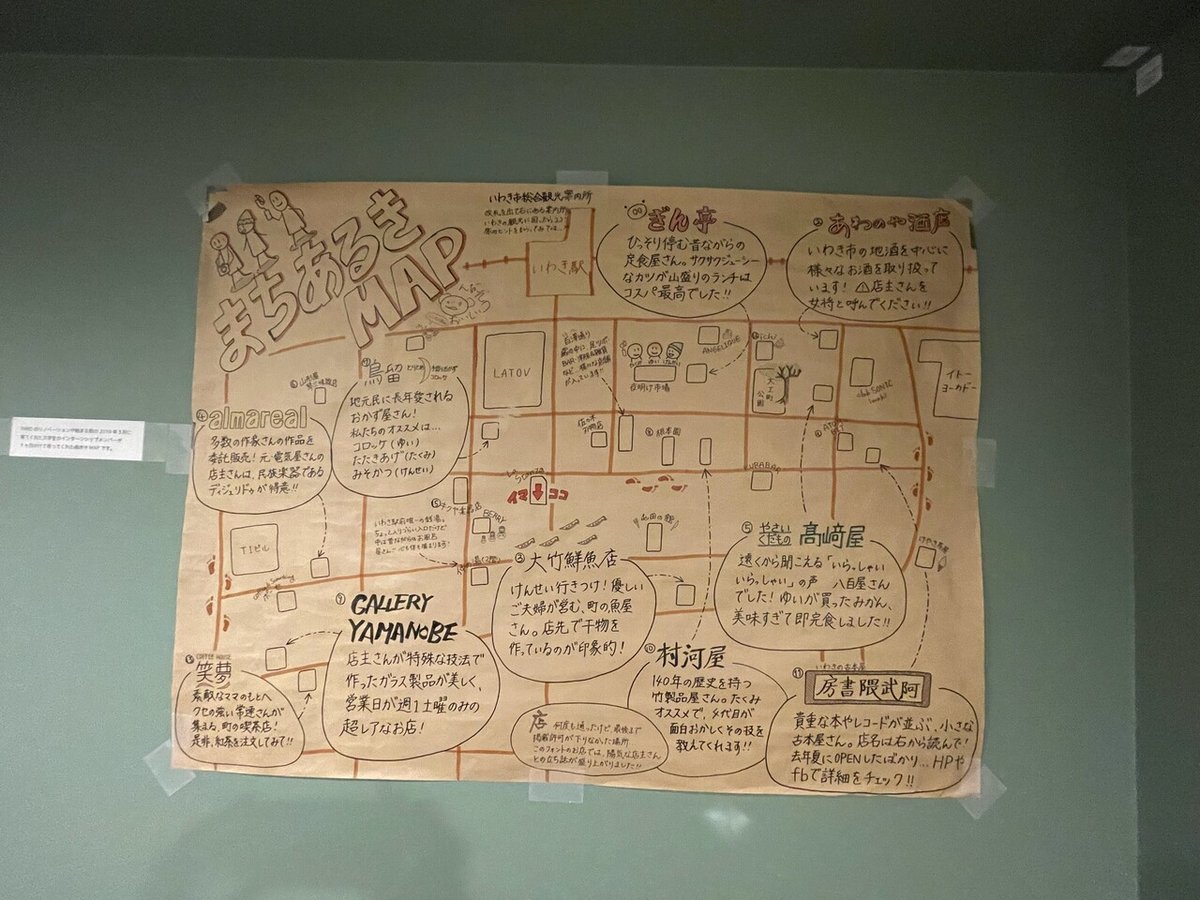 まちあるき
MAP
いわき市総合観光案内所
いわき駅
ぎん亭
ひっそり佇む昔ながらの
定食屋さん。サクサクジューシー
なカツが山盛りのランチは
コスパ最高でした!!
あわのや酒店
いわき市の地酒を中心に
様々なお酒を取り扱って
います! ⚠店主さんを
女将と呼んでください!!
鳥留
地元民に長年愛される
おかず屋さん!
私たちのオススメは…
コロッケ(ゆい)
たたきあげ(たくみ)
みそかつ(けんせい)
④ almareal
多数の作家さんの作品を
委託販売! 元・電気屋さんの
店主さんは、民族楽器である
ディジュリドゥが得意!!
LATOV
夜明け市場
ANGELIQUE
大工町
公園
club SONIC
イトー
ヨーカドー
La Stanza
イマ ココ
KURABAR
BERRY
T1ビル
③ 大竹鮮魚店
けんせい行きつけ! 優しい
ご夫婦が営む、町の魚屋
さん。店先で干物を
作っているのが印象的!
⑤ やさい
くだもの 高﨑屋
遠くから聞こえる「いらっしゃい
いらっしゃい」の声 八百屋さん
でした! ゆいが買ったみかん、
美味すぎて即完食しました!!
GALLERY
YAMANOBE
店主さんが特殊な技法で
作ったガラス製品が美しく、
営業日が週1土曜のみの
超レアなお店!
COFFEE HOUSE
笑夢
素敵なママのもとへ
クセの強い常連さんが
集まる、町の喫茶店!
是非、紅茶を注文してみて!!
店
何度も通ったけど、最後まで
掲載許可が下りなかった場所
このフォントのお店では、陽気な店主さん
との立ち話が盛り上がりました!!
⑩ 村河屋
140年の歴史を持つ
竹製品屋さん。たくみ
オススメで、父代目が
面白おかしくその技を
教えてくれます!!
⑪ いわきの古本屋
房書隈武阿
貴重な本やレコードが並ぶ、小さな
古本屋さん。店名は右から読んで!
去年夏にOPENしたばかり…HPや
fbで詳細をチェック!!